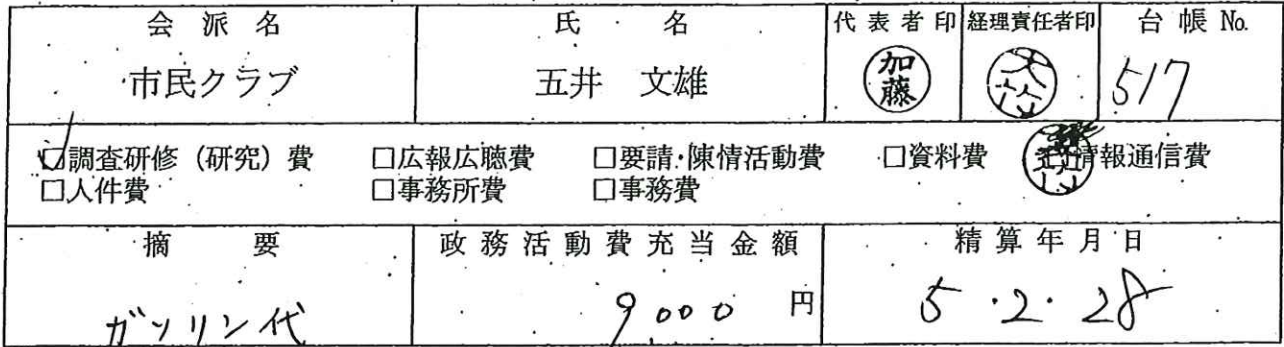 会派名 氏名 代表者印 経理責任者印 台帳No.
市民クラブ 五井 文雄 加藤 517
☑調査研修（研究）費 □広報広聴費 □要請・陳情活動費 □資料費 情報通信費
□人件費 □事務所費 □事務費
摘要 政務活動費充当金額 精算年月日
ガソリン代 9,000 円 5・2・28